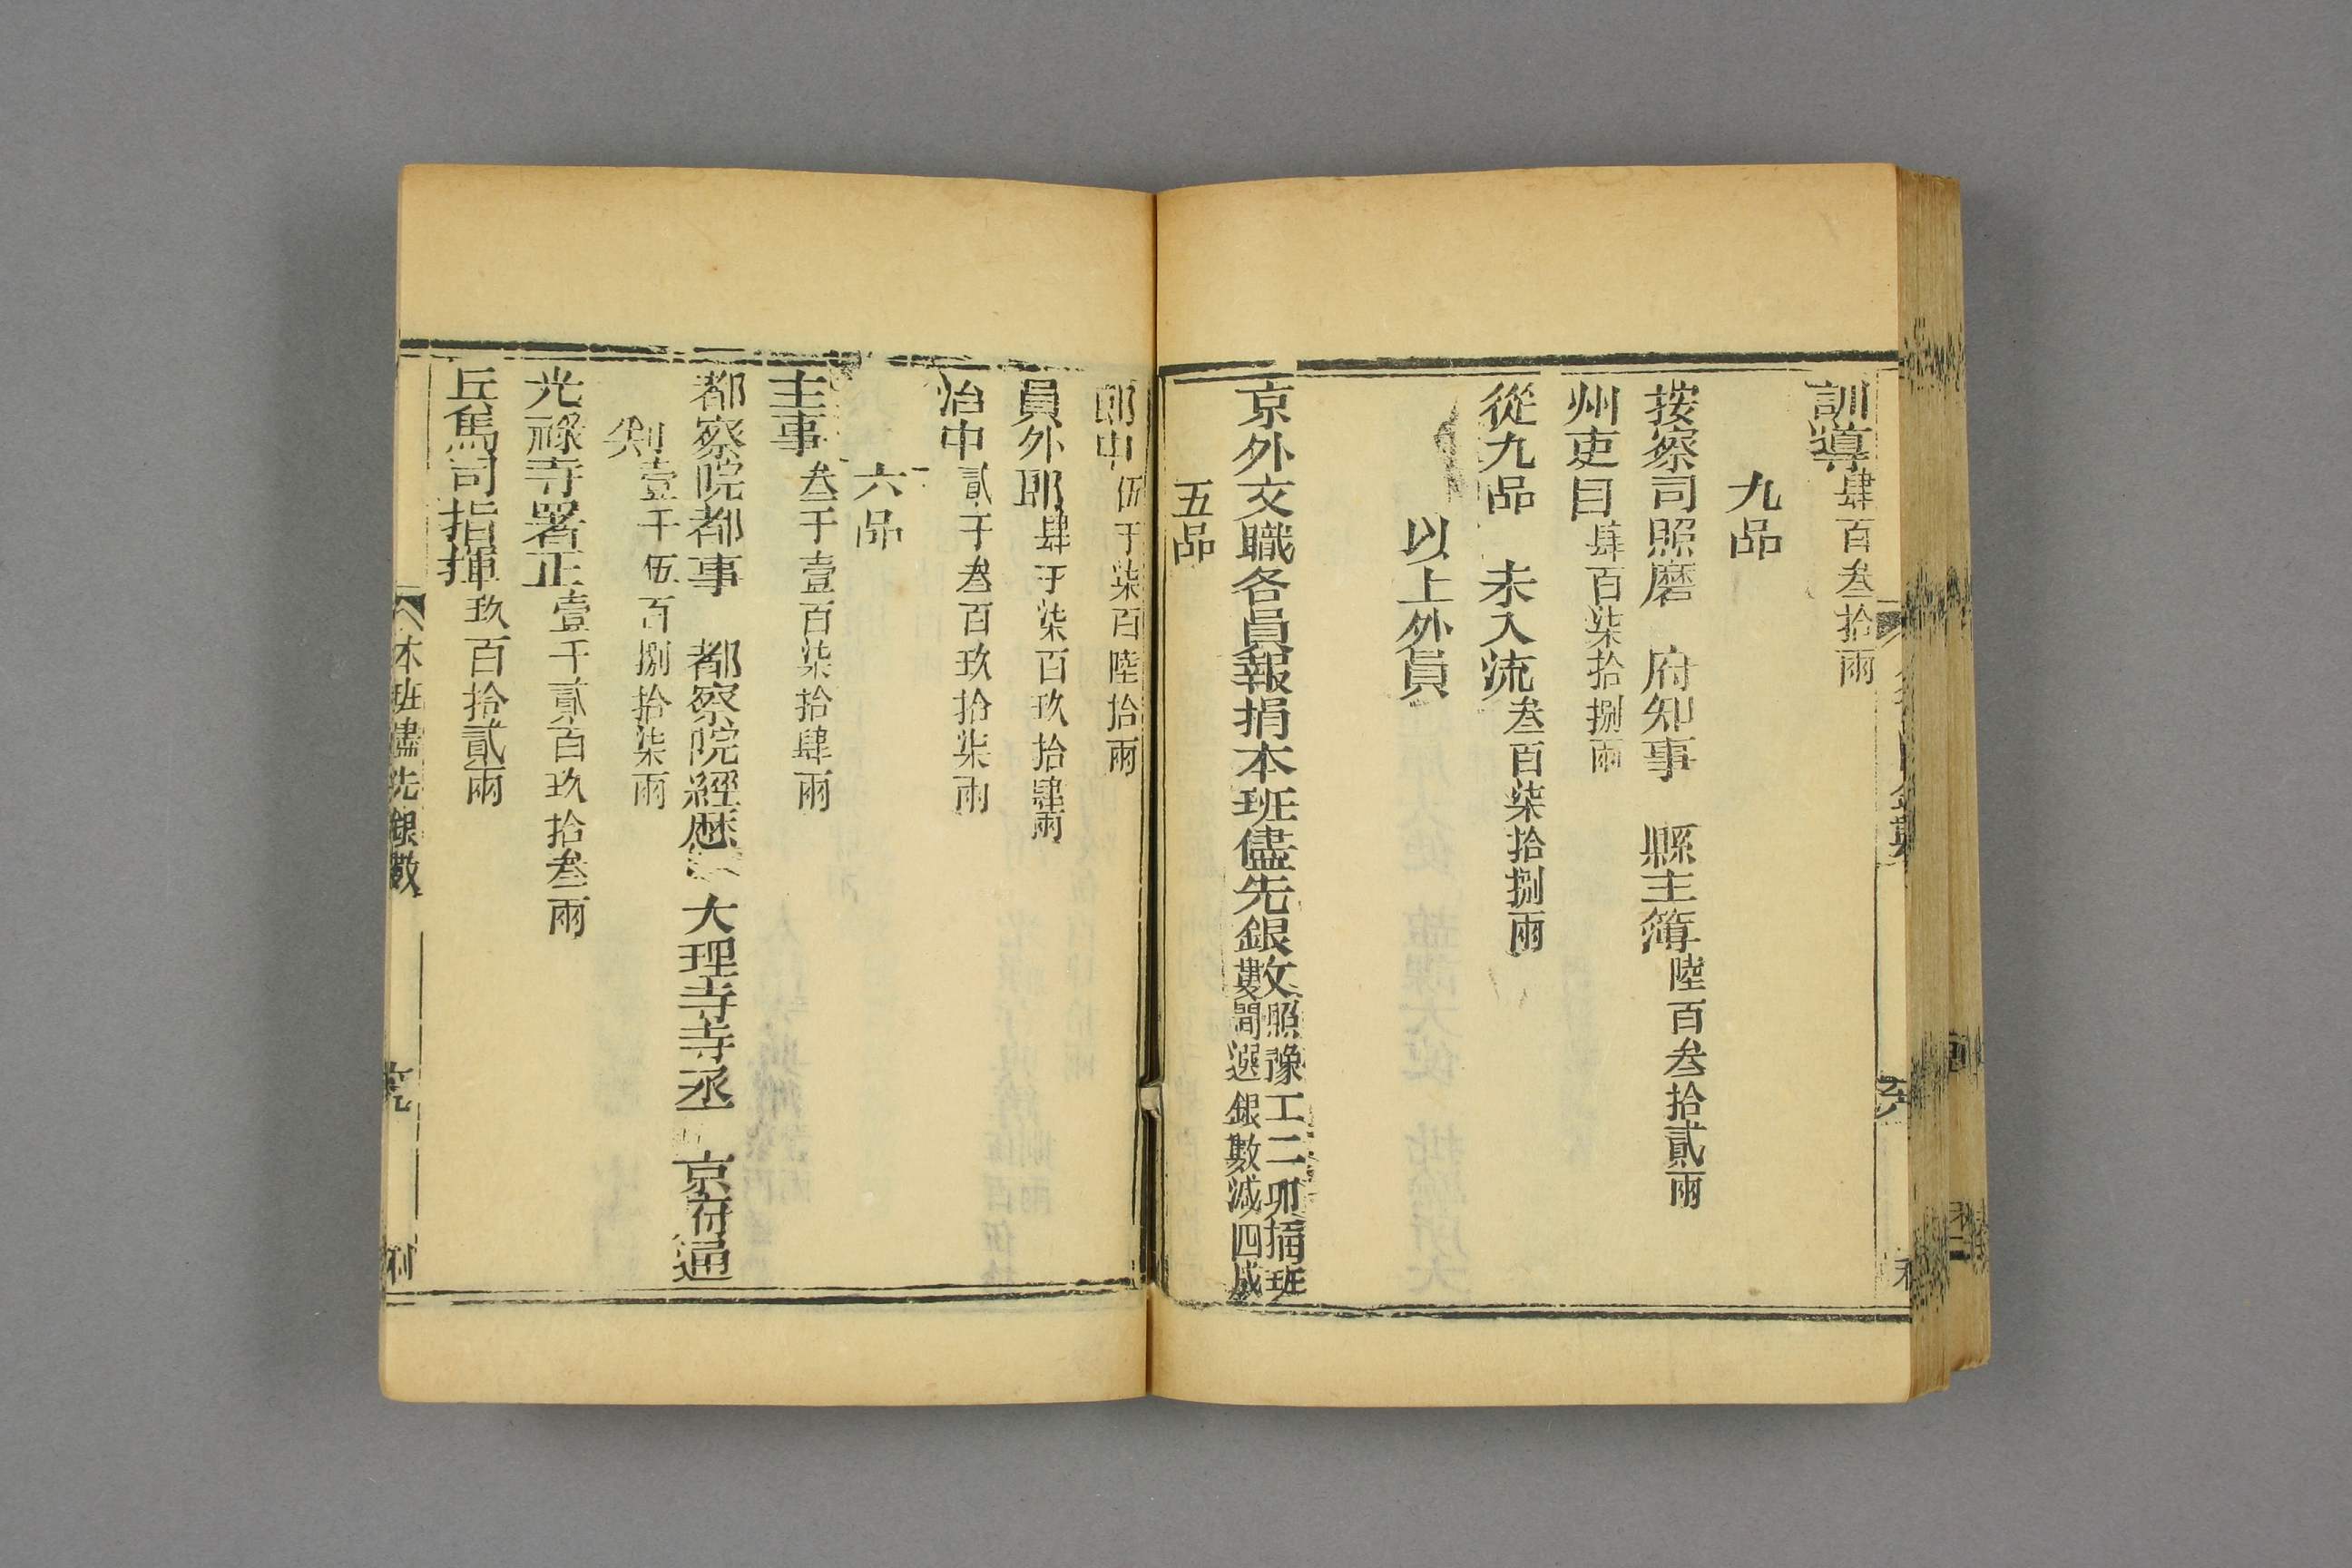 訓導肆百叁拾兩
九品
按察司照磨 府知事 縣主簿陸百叁拾貳兩
州吏目肆百柒拾捌兩
從九品 未入流叁百柒拾捌兩
以上外員
京外文職各員報捐本班儘先銀數照豫工二卯捐班
數間選銀數減四成
五品
郎中伍千柒百陸拾兩
員外郎肆千柒百玖拾肆兩
治中貳千叁百玖拾柒兩
六品
主事叁千壹百柒拾肆兩
都察院都事 都察院經歷 大理寺寺丞 京府通
判壹千伍百捌拾柒兩
光祿寺署正壹千貳百玖拾叁兩
兵馬司指揮玖百拾貳兩
本班儘先銀數